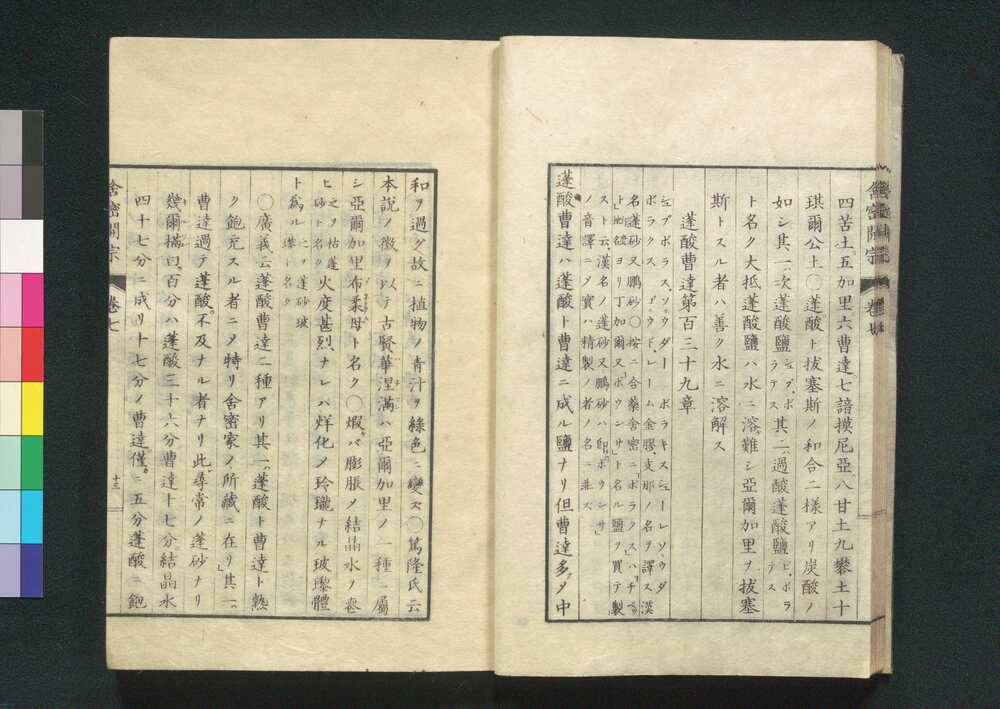 四苦土五加里六曹達七諳摸尼亞八甘土九礬土十
琪爾公土〇蓬酸ト拔塞斯ノ和合二様アリ炭酸ノ
如シ其一次蓬酸鹽ラテス其二過酸蓬酸鹽
ト名ク大抵蓬酸鹽ハ水ニ溶難シ亞爾加里ヲ拔塞
斯トスル者ハ善ク水ニ溶解ス
蓬酸曹達第百三十九章
ボラクス 金膠支那ノ名ヲ譯ス漢
名蓬砂又鵬砂〇按ニ合藥舍密ニボラクスハ
ヨリ丁加爾又ボウンサト名ル鹽ヲ買テ製
スト云漢名ノ蓬砂又鵬砂ハ即ボウンサ
ノ音譯ニメ實ハ精製ノ者ノ名ニ非ズ
蓬酸曹達ハ蓬酸ト曹達ニ成ル鹽ナリ但曹達多メ中
和ヲ過グ故ニ植物ノ青汁ヲ綠色ニ變ス〇篤隆氏云
本說ノ徵ヲ以テ古賢華涅滿ハ亞爾加里ノ一種ニ屬
シ亞爾加里布柔母ト名ク〇煆バ膨脹メ結晶水ヲ喪
ヒ之ヲ枯蓬砂ト名ク火度甚烈ナレハ烊化メ玲瓏ナル玻瓈體
ト爲ル之ヲ蓬砂玻瓈ト名ク
〇廣義云蓬酸曹達二種アリ其一蓬酸ト曹達ト熟
ク飽充スル者ニメ特リ舍密家ノ所藏ニ在リ其二
曹達過テ蓬酸不及ナル者ナリ此尋常ノ蓬砂ナリ
幾爾滿曰百分ハ蓬酸三十六分曹達十七分結晶水
四十七分ニ成リ十七分ノ曹達僅ニ五分蓬酸ニ飽
舍密開宗 卷七 十三